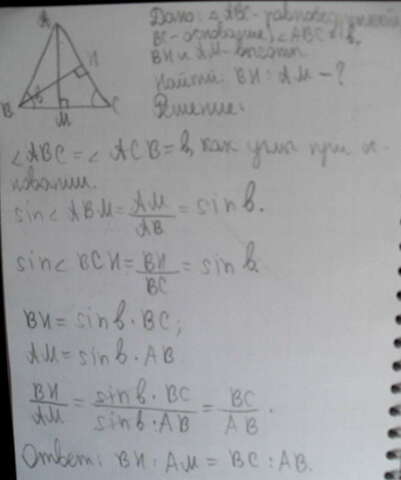 A
H
B
b
M
C
Дано: △ ABC - равнобедренный
BC - основание, ∠ABC = b.
BH и AM - высоты.
Найти: BH : AM - ?
Решение:
∠ABC = ∠ACB = b, как углы при ос-
новании.
sin∠ABM = AM/AB = sin b.
sin∠BCH = BH/BC = sin b.
BH = sin b · BC;
AM = sin b · AB
BH/AM = sin b · BC/sin b · AB = BC/AB.
Ответ: BH : AM = BC : AB.